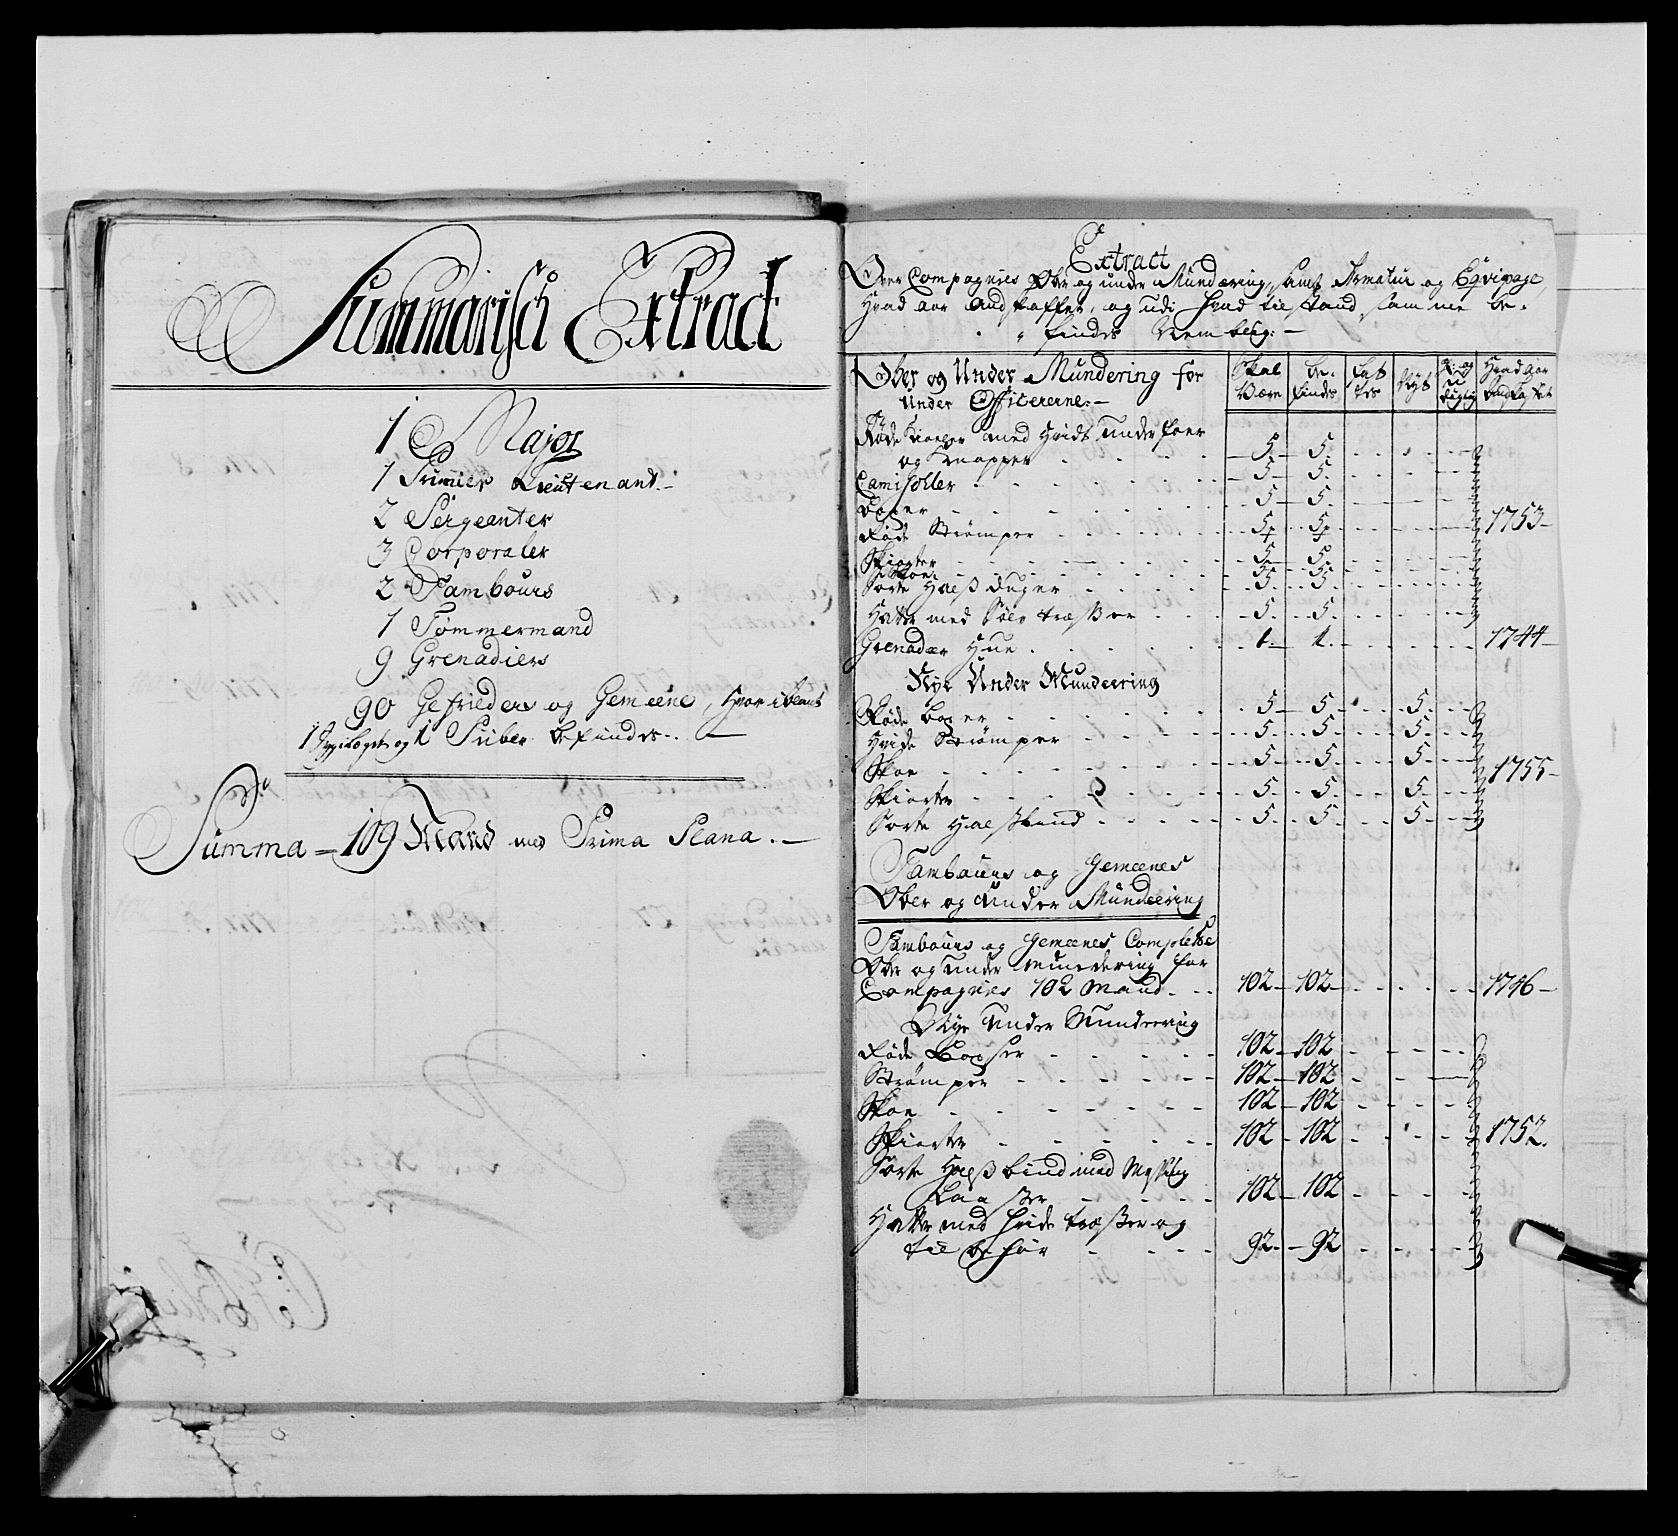 Summarisch Extract
1 Major
1 Premier Lieutenant.
2 Sergeanter
3 Corporaler
2 Tambours
1 Tømmermand
9 Grenadiers
90 Gefrieders og Gemeene, hvor iblant
og 1 Piber befindes.
Summa = 109 Mand med Prima Plana.
Extract
Over Compagnies Ober og under Mundæring, samt Armatur og Eqvipage,
Hvad aar Andskaffet, og udi hvad tilstand samme be-
findes Nemblig:
Ober og Under Mundering for
Under Officererne:
Skal Være
Be-findes
Fattes
Nyt
Hvad aar Andskaffet
Røde Kioler med Hvidt under foer
og Knapper 5 5
Camisohler 5 5
Boxer 5 5
Røde Strømper 5 p 5 p 1753
Skiorter 5 5
Skoe
Sorte Halsduger 5 5
Hatte med Sølv træsser 5 5
Grenadær Hue 1 1 1744
Nye Under Mundeering
Røde boxer 5 5 5
Hvide Strømper 5 5 5
Skoe 5 5 5 1755
Skiorter 5 5 5
Sorte Halsbind 5 5 5
Tambours og Gemeenes
Ober og Under Mundeering
Tambours og Gemeenes Complette
Ober og Under Mundering for
Compagnies 102 Mand 102 102 1746
Nye Under Mundeering
Røde Boxser 102 102
Strømper 102 102
Skoe 102 102
Skiorter 102 102 1752.
Sorte Halsbind med Messing
Laaser 102 102
Hatte med hvide træsser og
til behør 92 92